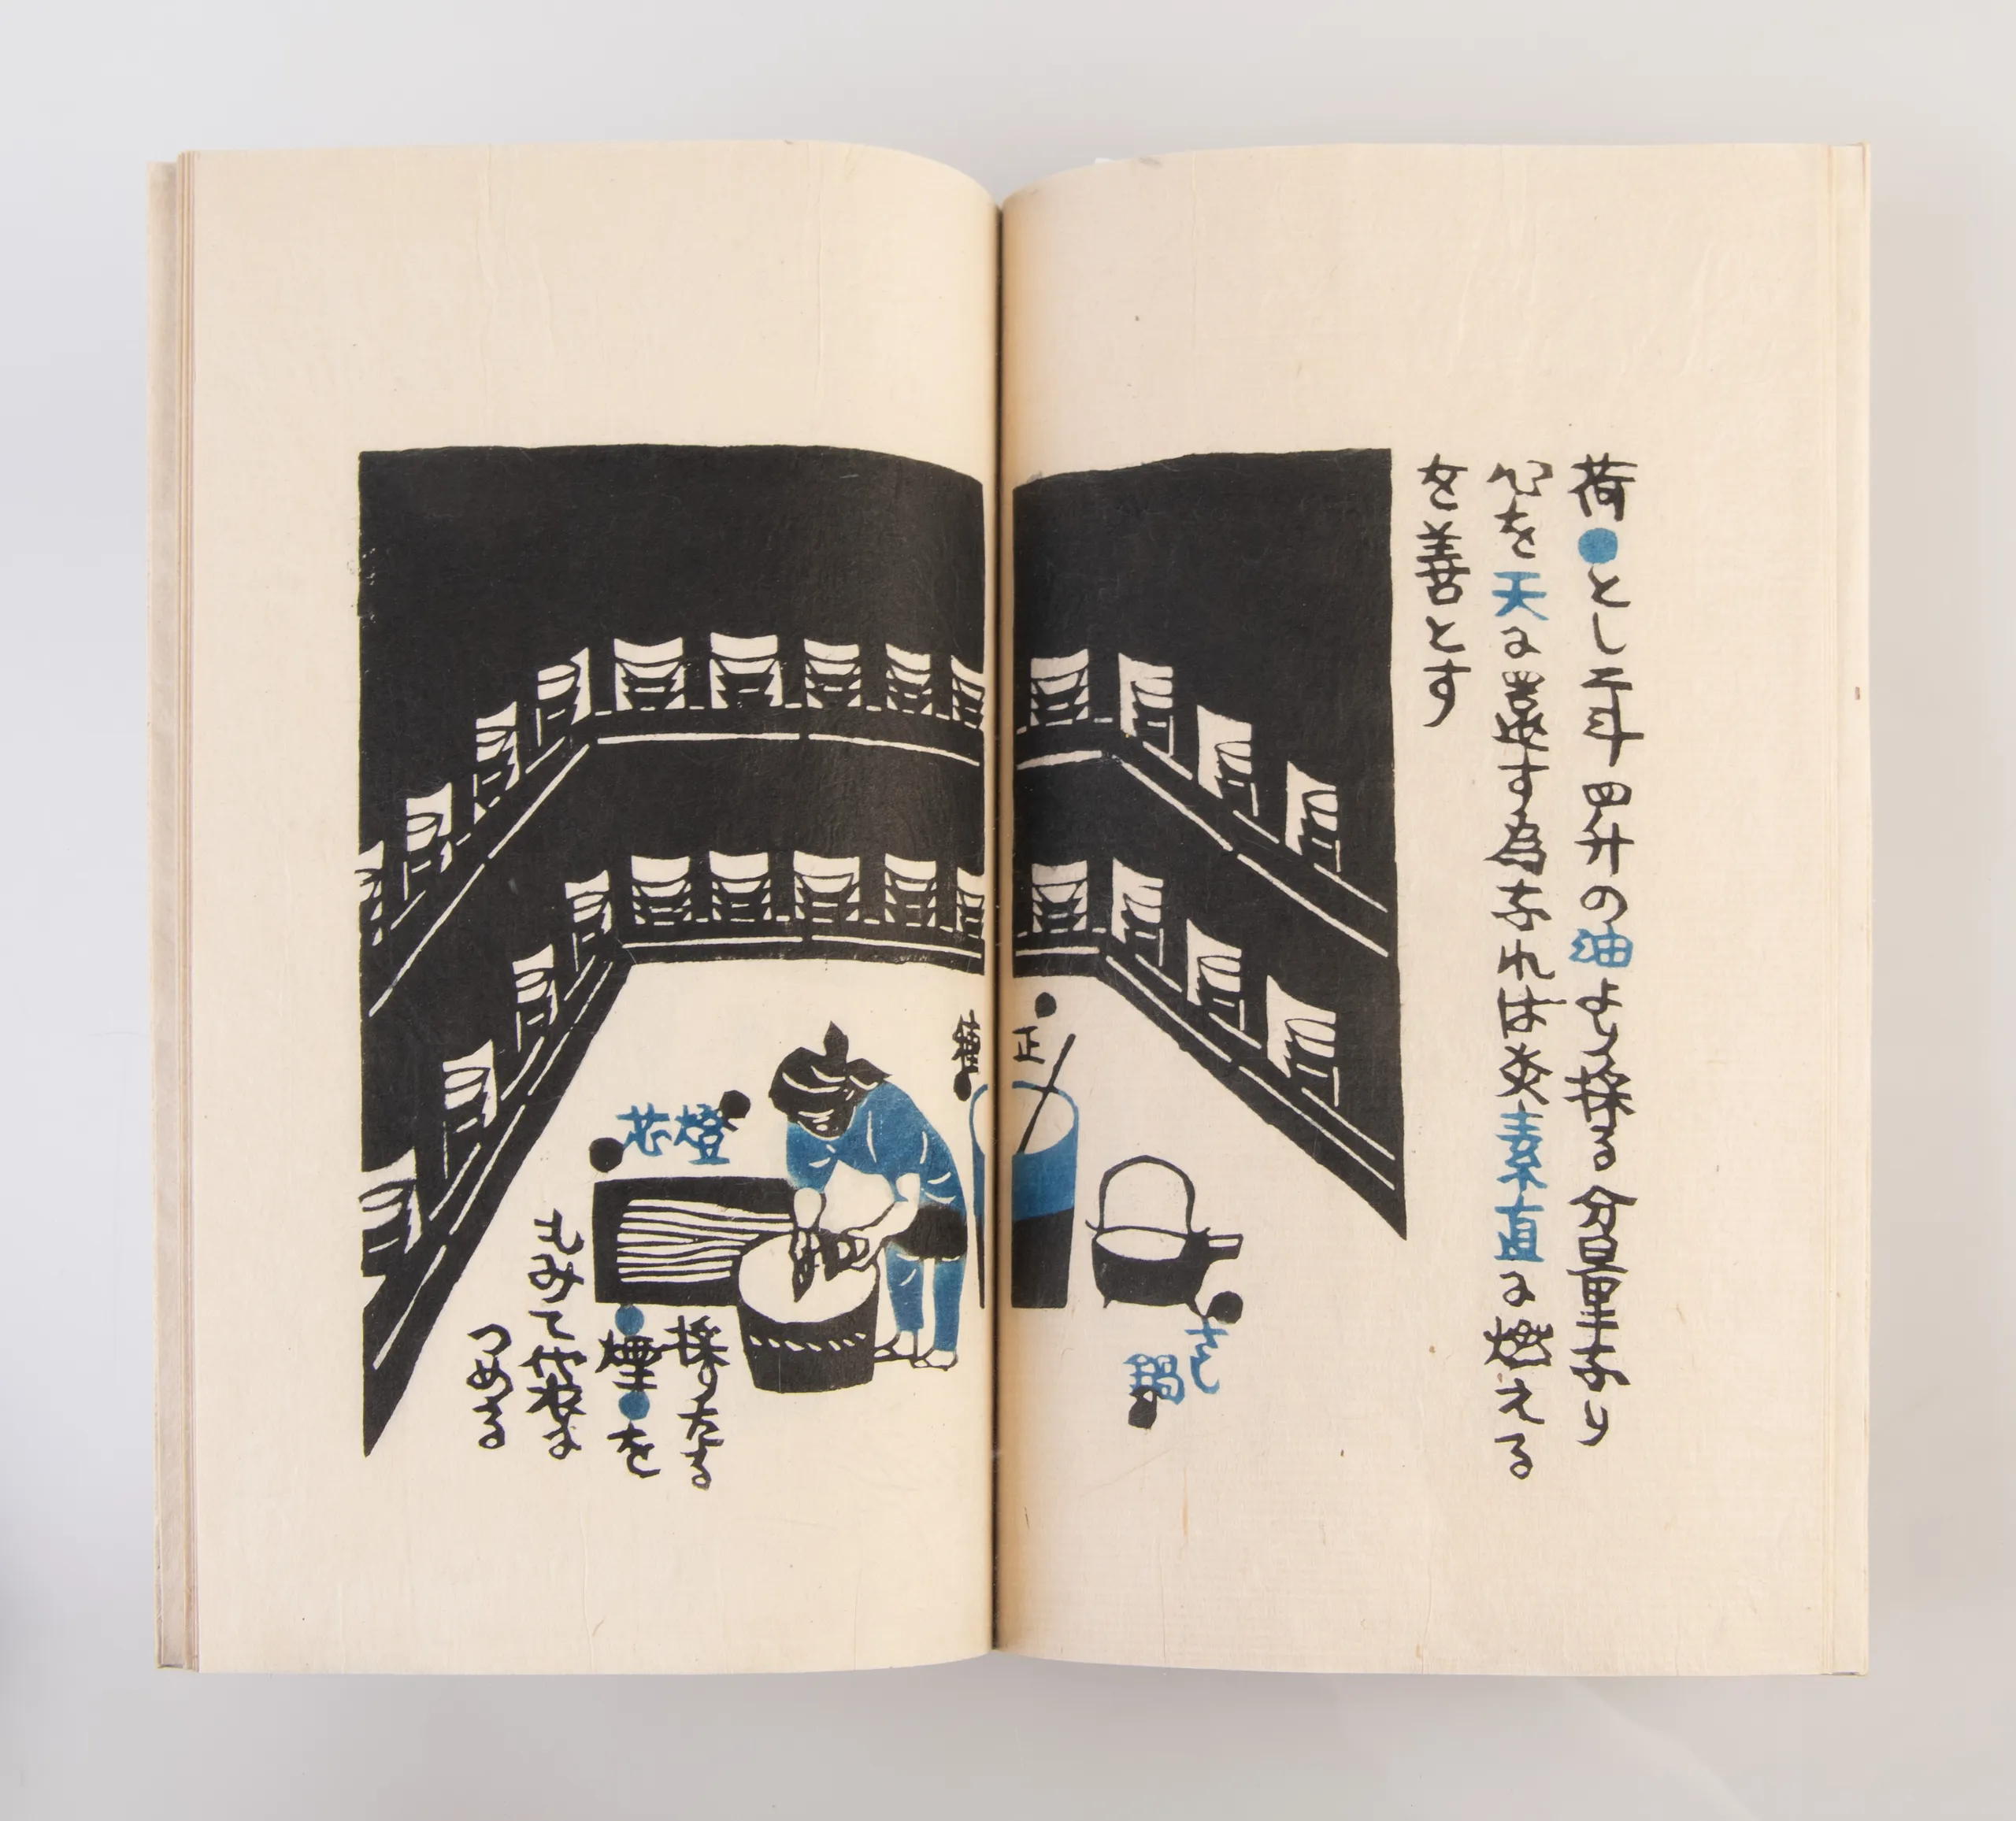 荷とし斗四升の油より採る分量なり
心を天にす為なれは炎素直に燃える
を善とす
さし
鍋
正
燈芯
採りたる
煙を
もみて袋に
つめる